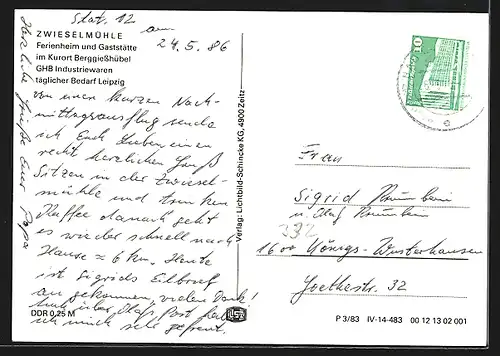 Stat. 12 am
24.5.86
ZWIESELMÜHLE
Ferienheim und Gaststätte
im Kurort Berggießhübel
GHB Industriewaren
täglicher Bedarf Leipzig
von einer kurzen Nach-
mittagsausflug sende
ich Euch Lieben einen
recht herzlichen Gruß
Sitzen in der Zwiesel-
mühle und trinken
Kaffee danach geht
es wieder schnell nach
Hause ≈ 6 km. Heute
ist Sigrids Eilbrief
angekommen, vielen Dank!
hab über Olafs Post hab
ich mich sehr gefreut.
Herzliche Grüße Euer Papa
DDR 0,25 M
Verlag: Lichtbild-Schincke KG, 4900 Zeitz
10
Frau
Sigrid
u. Olaf
332
1600 Königs-Wusterhausen
Goethestr. 32
P 3/83 IV-14-483 00 12 13 02 001